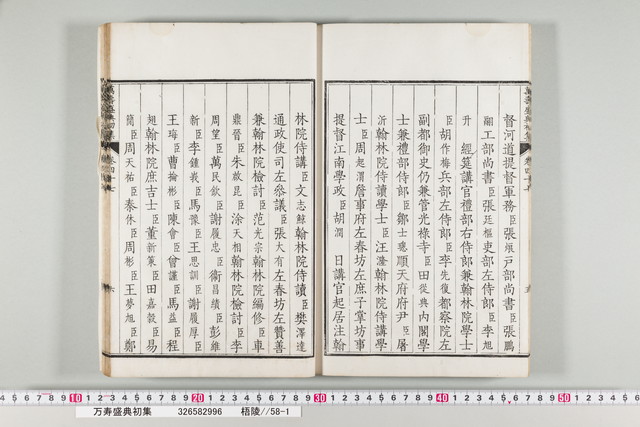 督河道提督軍務臣張𤊟戶部尚書臣張鵬
翮工部尚書臣張廷樞吏部左侍郎臣李旭
升 經筵講官禮部右侍郎兼翰林院學士
臣胡作梅兵部左侍郎臣李先復都察院左
副都御史仍兼管光祿寺臣田從典內閣學
士兼禮部侍郎臣鄒士璁順天府府尹臣屠
沂翰林院侍讀學士臣汪漋翰林院侍講學
士臣周起渭詹事府左春坊左庶子掌坊事
提督江南學政臣胡潤 日講官起居注翰
林院侍講臣文志鯨翰林院侍讀臣樊澤達
通政使司左叅議臣張大有左春坊左贊善
兼翰林院檢討臣范光宗翰林院編修臣車
鼎晉臣朱啟昆臣涂天相翰林院檢討臣李
周望臣萬民欽臣謝履忠臣衛昌績臣彭維
新臣李鍾峩臣馬豫臣王思訓臣謝履厚臣
王珻臣曹掄彬臣陳會臣曾謹臣馬益臣程
翅翰林院庶吉士臣董新策臣田嘉穀臣易
簡臣周天祐臣秦休臣周彬臣王夢旭臣鄭
万寿盛典初集 326582996 梧陵//58-1